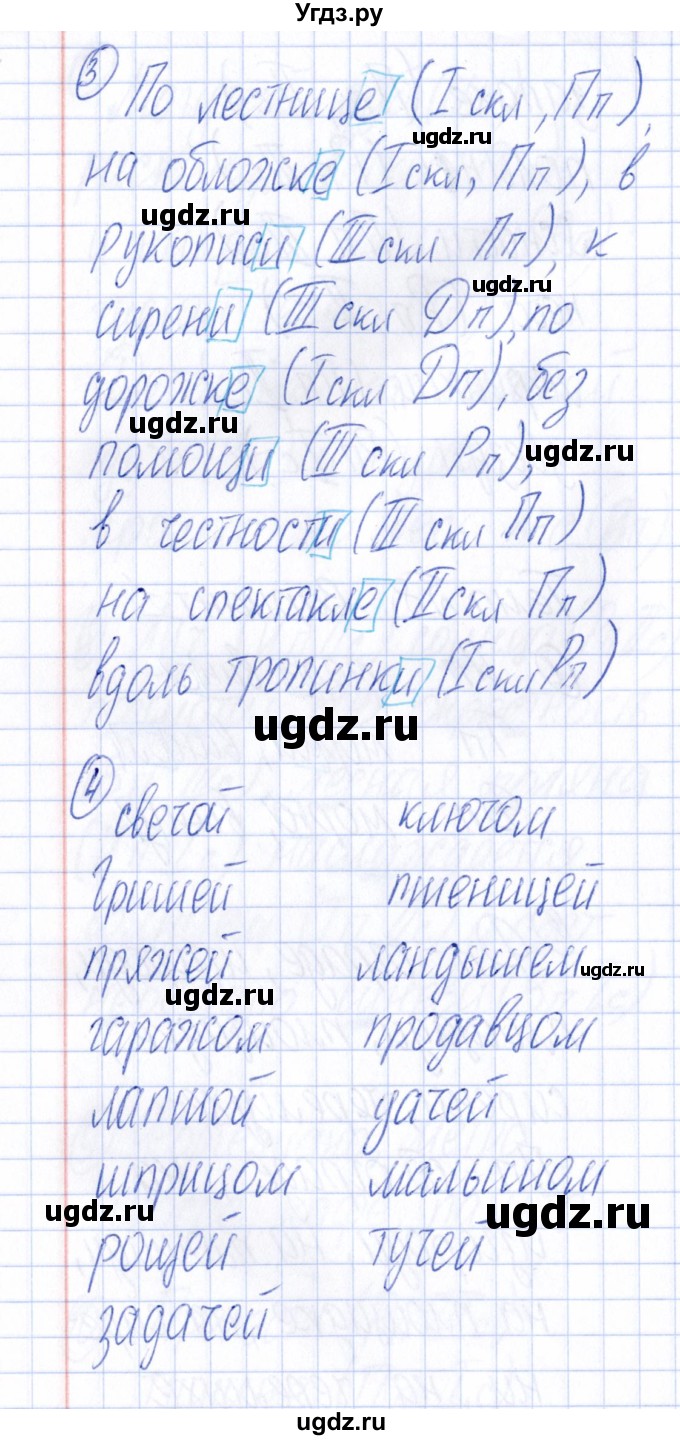 Угдз.ру
3 По лестнице (I скл, Пп),
ugdz.ru
на обложке (I скл, Пп), в
ugdz.ru
рукописи (III скл Пп), к
ugdz.ru
сирени (III скл Дп), по
дорожке (I скл Дп), без
ugdz.ru
помощи (III скл Рп),
ugdz.ru
в честности (III скл Пп)
на спектакле (II скл Пп)
вдоль тропинки (I скл Рп)
ugdz.ru
4 свечой ключом
Гришей пшеницей
пряжей ландышем
ugdz.ru
ugdz.ru
гаражом продавцом
лапшой уачей
шприцом малышом
ugdz.ru
ugdz.ru
рощей тучей
задачей
ugdz.ru